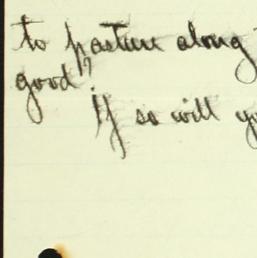 to pasture along
good?
If so will